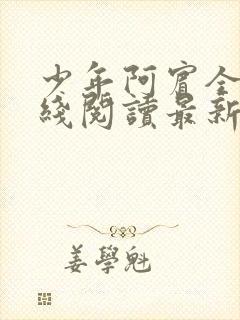 少年阿賓全
綫閱讀最新
姜學魁